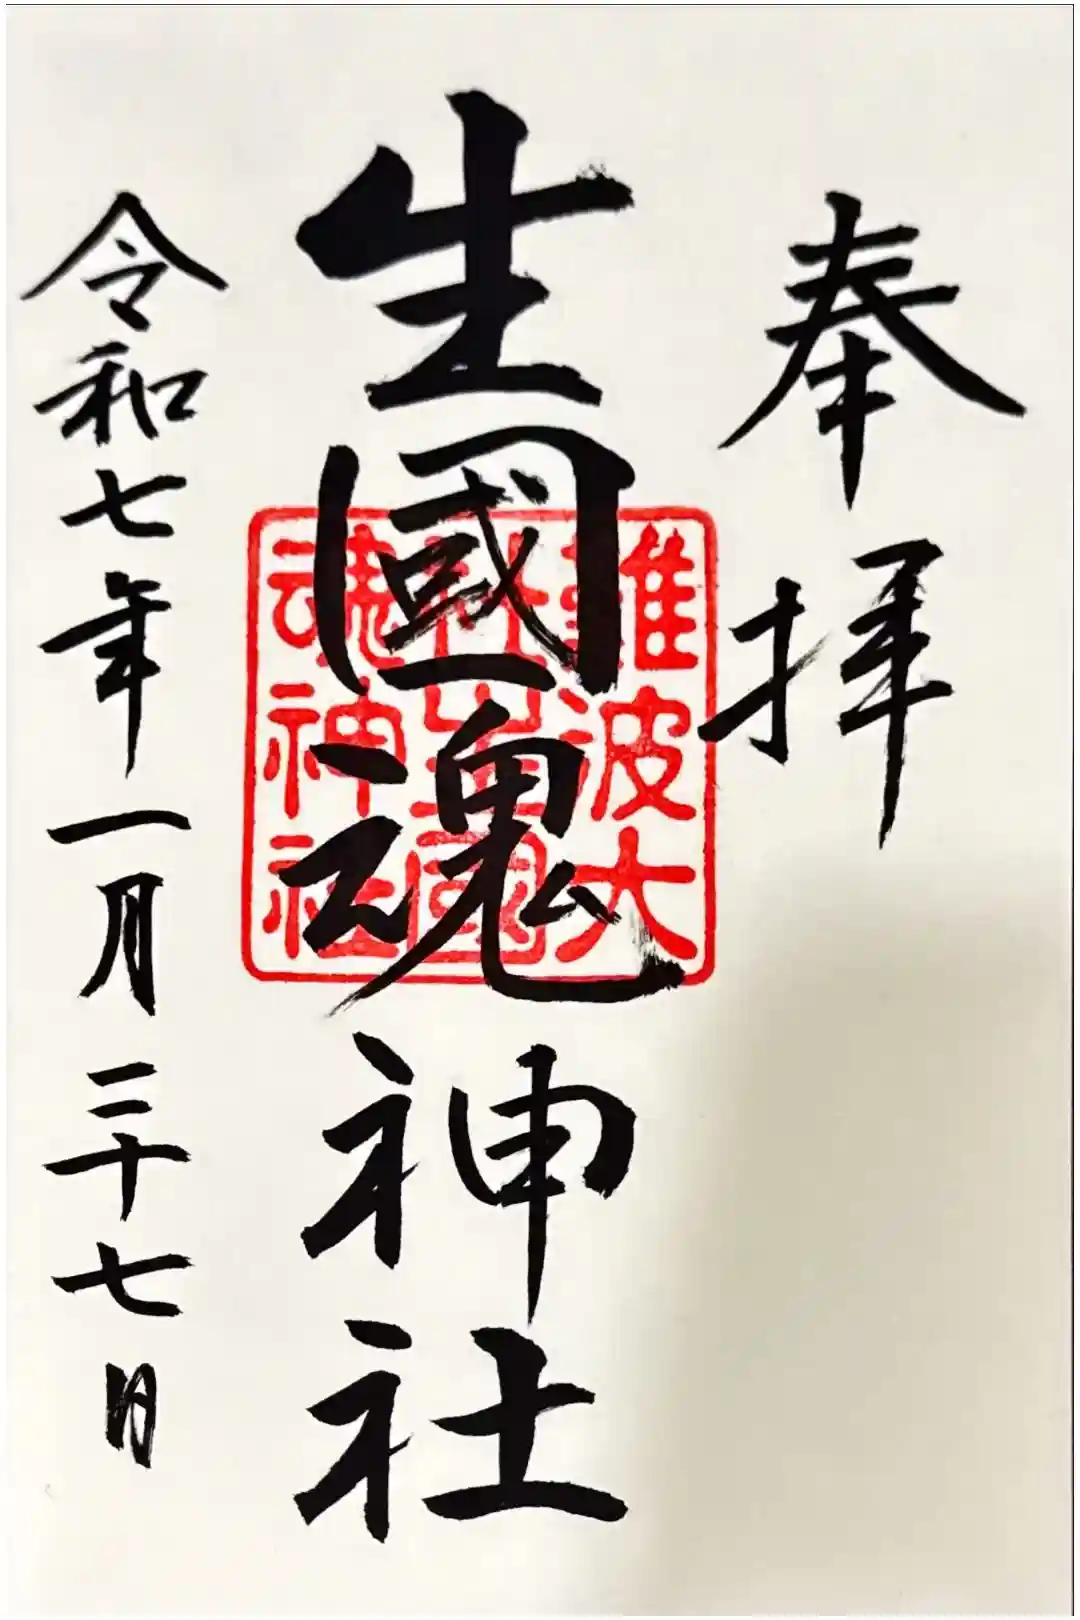 奉拝
生國魂神社
難波大
社生国
魂神社
令和七年一月二十七日